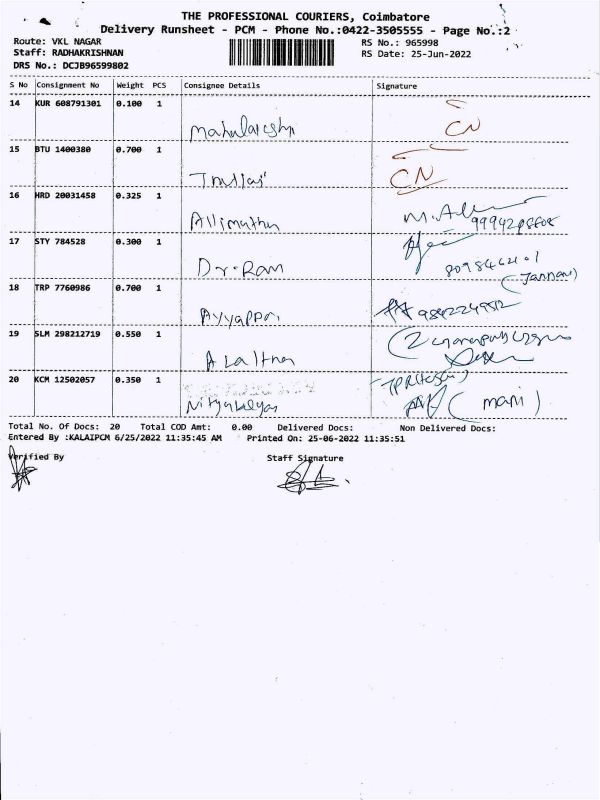 THE PROFESSIONAL COURIERS, Coimbatore
Delivery Runsheet - PCM - Phone No.:0422-3505555 - Page No.:2
Route: VKL NAGAR
RS No.: 965998
Staff: RADHAKRISHNAN
RS Date: 25-Jun-2022
DRS No.: DCJB96599802
S No Consignment No Weight PCS Consignee Details Signature
14 KUR 608791301 0.100 1
CN
15 BTU 1400380 0.700 1
CN
16 HRD 20031458 0.325 1
Allimuthu
17 STY 784528 0.300 1
Dr. Ram
18 TRP 7760986 0.700 1
Ayyappan
19 SLM 298212719 0.550 1
20 KCM 12502057 0.350 1
(mani)
Total No. Of Docs: 20 Total COD Amt: 0.00 Delivered Docs: Non Delivered Docs:
Entered By :KALAIPCM 6/25/2022 11:35:45 AM Printed On: 25-06-2022 11:35:51
Verified By
Staff Signature